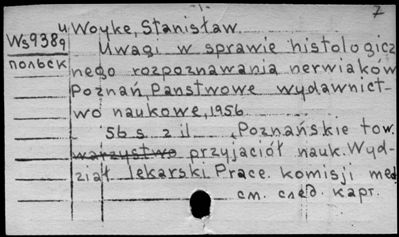 7
и Woyke, Stanisław
Ws938q Uwagi w sprawie histologicz
польск nego rozpoznawania nerwiaków
Poznań, Państwowe wydawnict-
wo naukowe, 1956
56 s. z il. (Poznańskie tow.
warzystwo przyjaciół nauk. Wyd-
ział lekarski. Prace komisji med
см. след. карт.